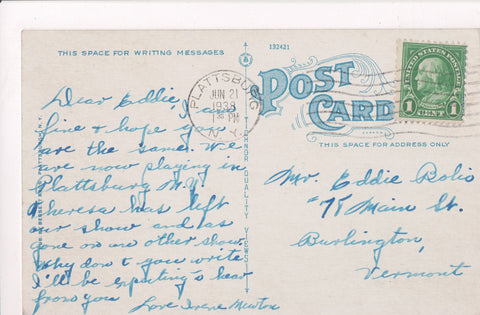 THIS SPACE FOR WRITING MESSAGES
132421
POST CARD
THIS SPACE FOR ADDRESS ONLY
PLATTSBURG
JUN 21
1938
PM
N.Y.
UNITED STATES POSTAGE
FRANKLIN
1 CENT 1
TICHNOR QUALITY VIEWS
Dear Eddie, I am
fine & hope you
are the same. We
are now playing in
Plattsburg N.Y.
Theresa has left
our show and has
gone on an other show.
Why don't you write
I'll be expecting & hear
from you
Love Irene Newton
Mr. Eddie Bolio
75 Main St.
Burlington,
Vermont